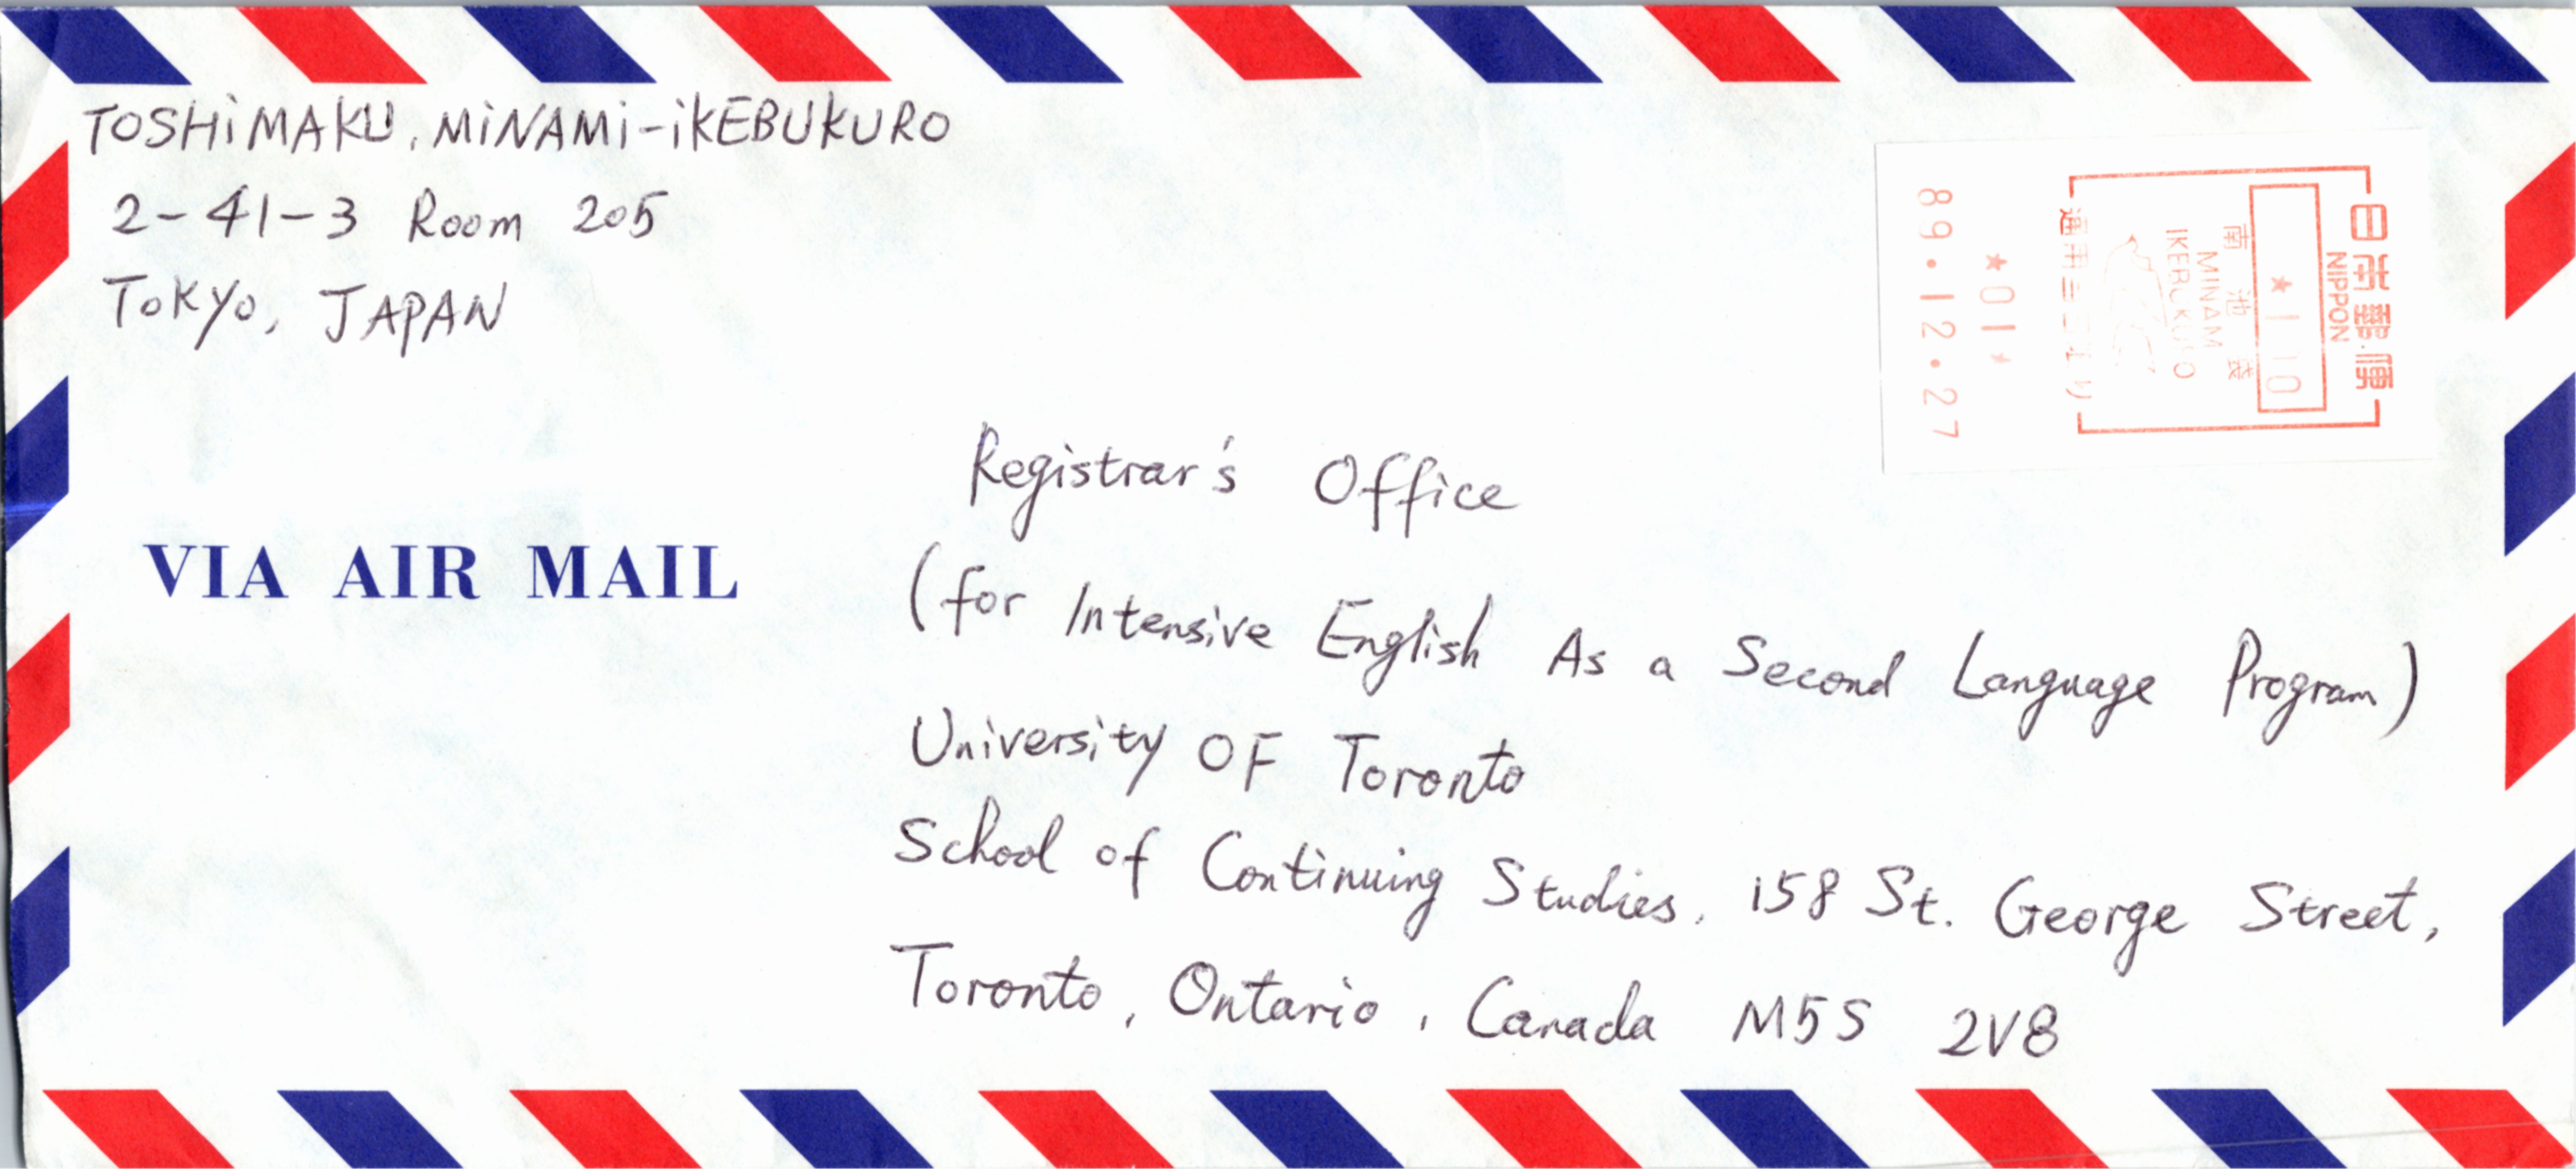 TOSHiMAKU, MiNAMi-iKEBUKURO
2-41-3 Room 205
TOKYO, JAPAN
日本郵便
NIPPON
★110
南池袋
MINAMI
IKEBUKURO
★01★
89.12.27
VIA AIR MAIL
Registrar's Office
(for Intensive English As a Second Language Program)
University OF Toronto
School of Continuing Studies, 158 St. George Street,
Toronto, Ontario, Canada M5S 2V8